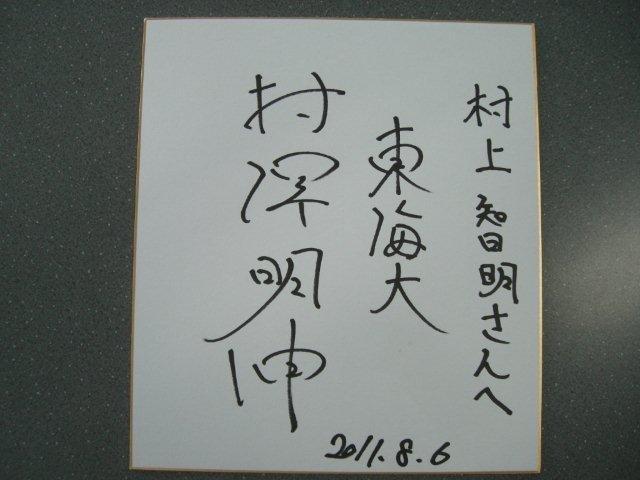 村上智明さんへ
東海大
村澤明伸
2011.8.6